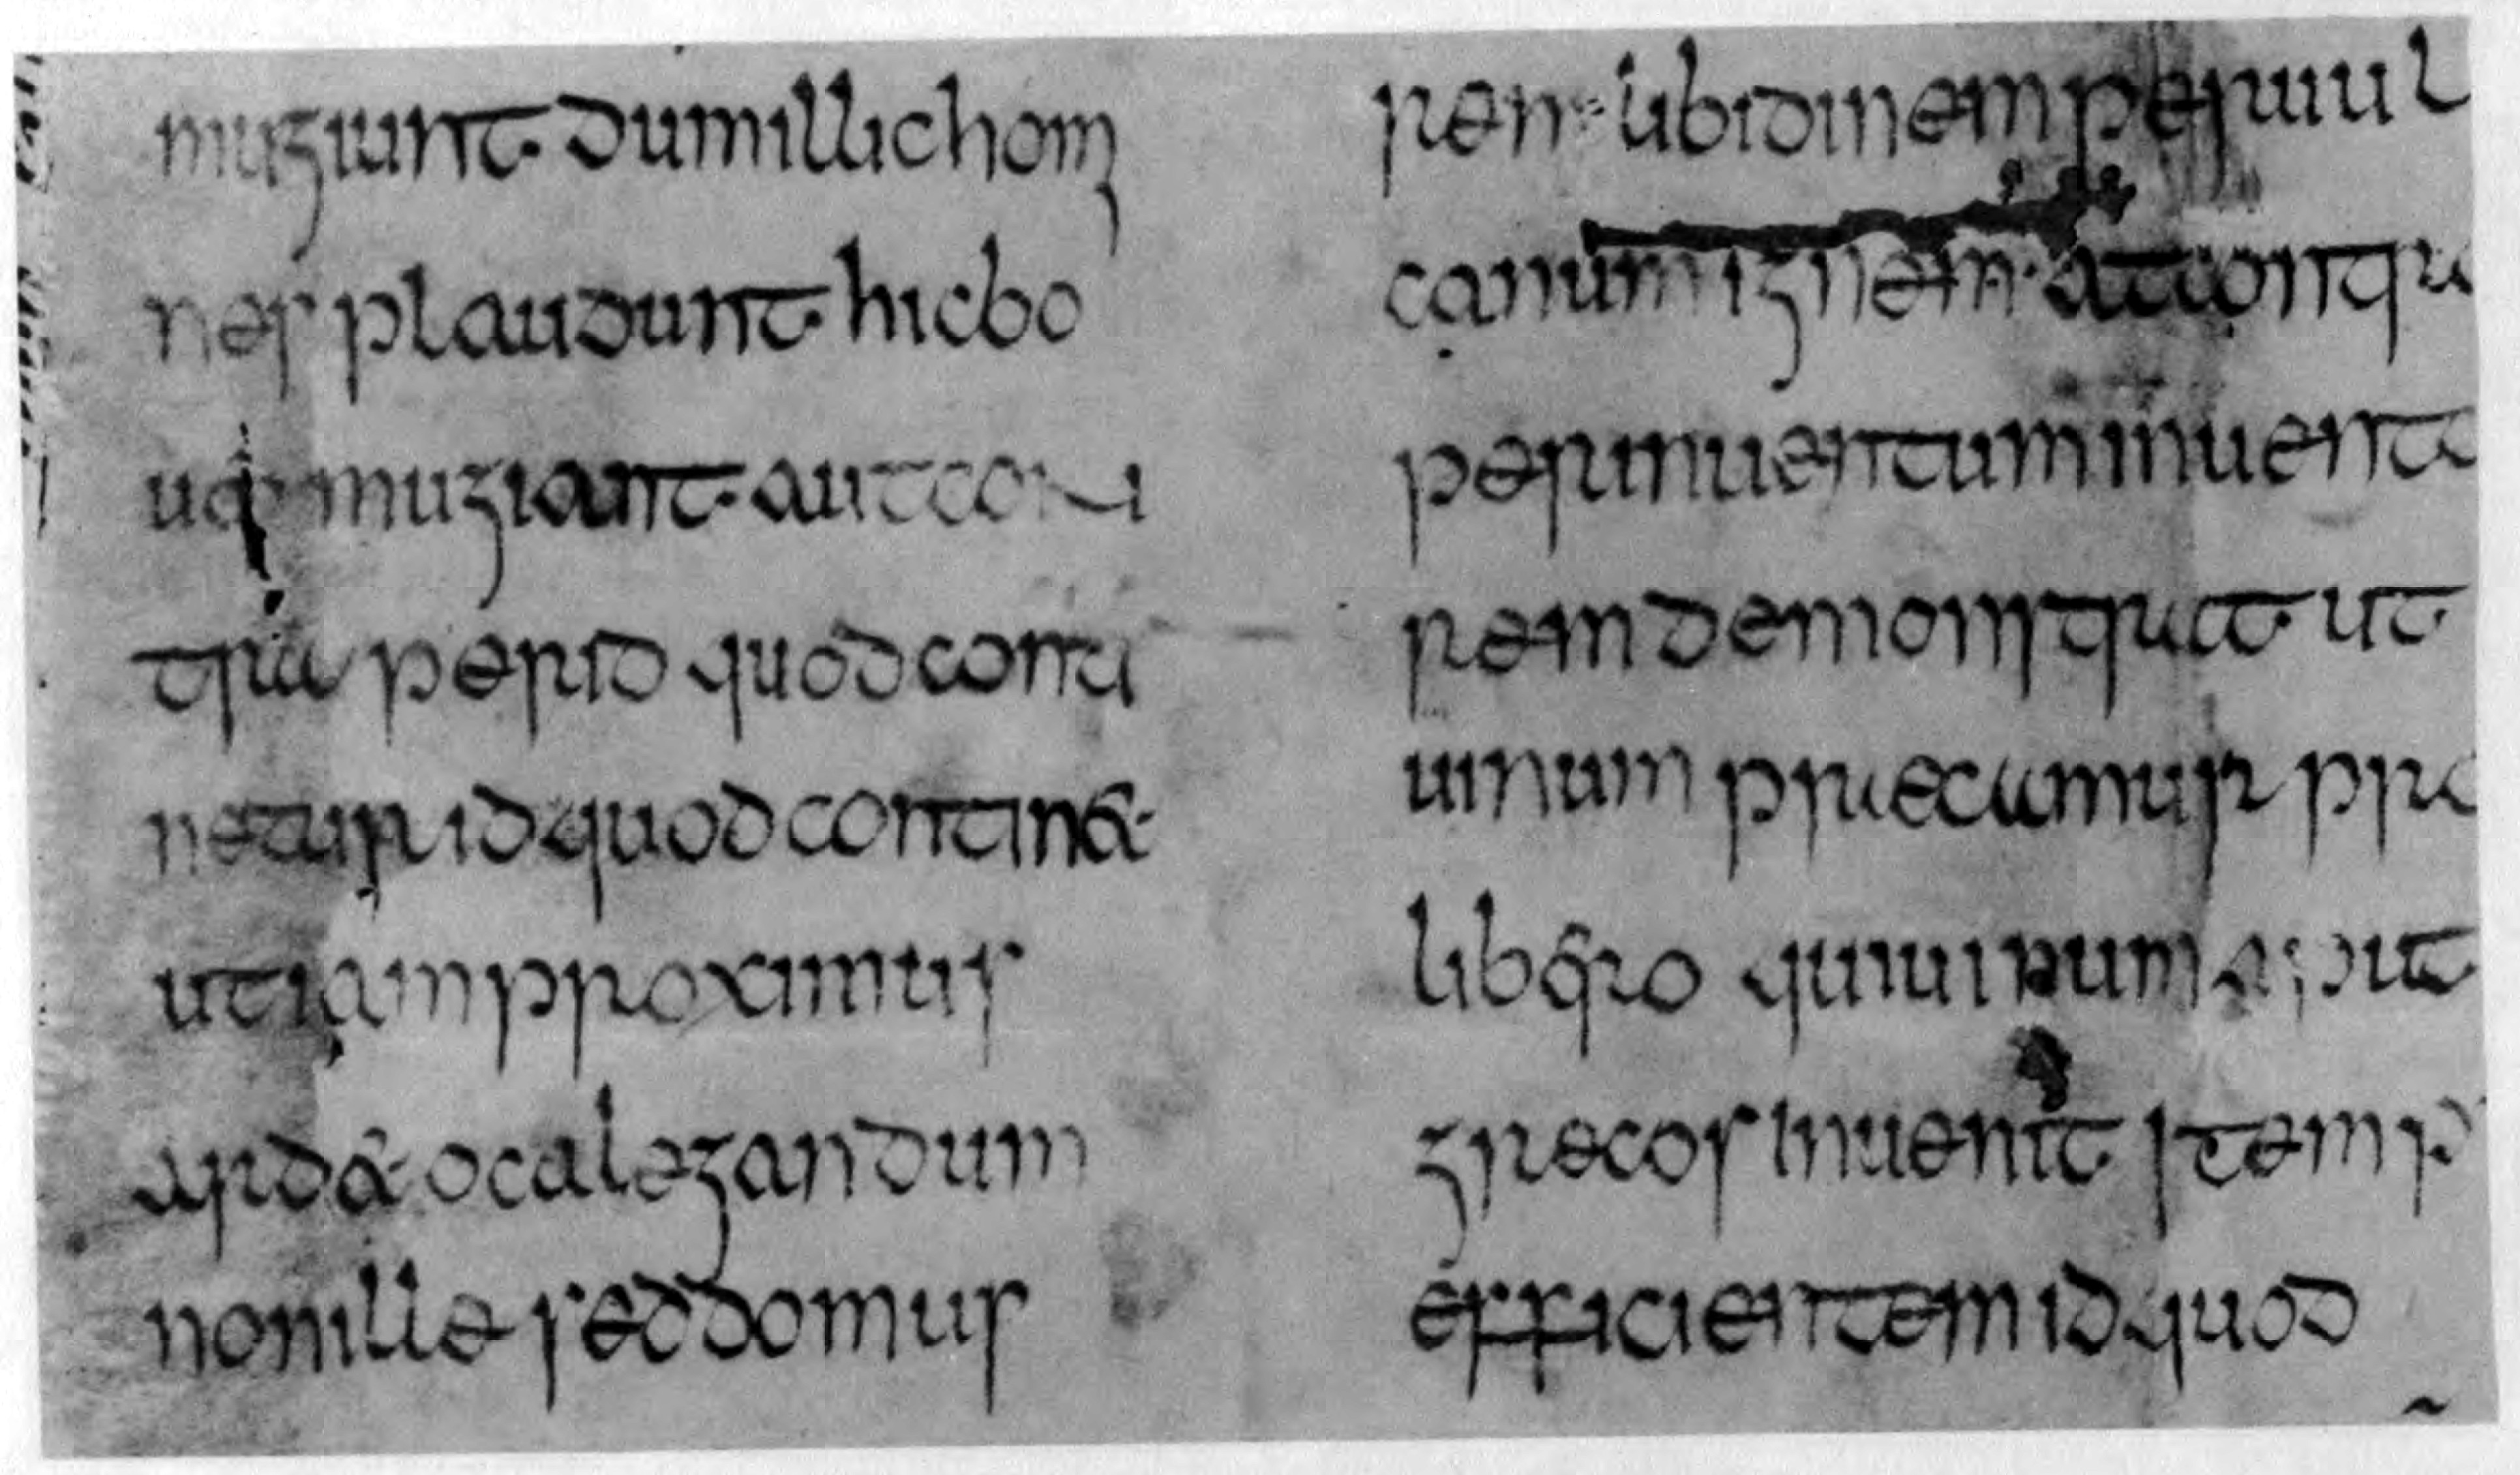 mugiunt dum illic homi
nes plaudunt hic bo
ues mugiant aut con
tra per id quod conti
netur id quod contin&
ut iam proximus
ard& ocalegandum
non ille sed domus
rem libidinem per uul
canum ignem at contra
per inuentum inuento
rem demonstrat ut
uinum praecamur pro
libero qui uinum apud
grecos inuenit item p
efficientem id quod